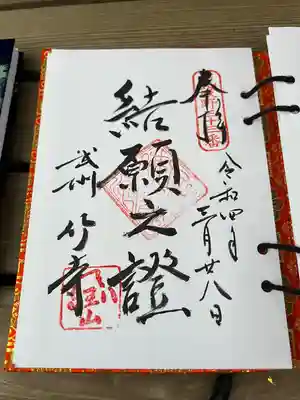 奉拝
令和四年
三月廿八日
結願之證
武州 竹寺